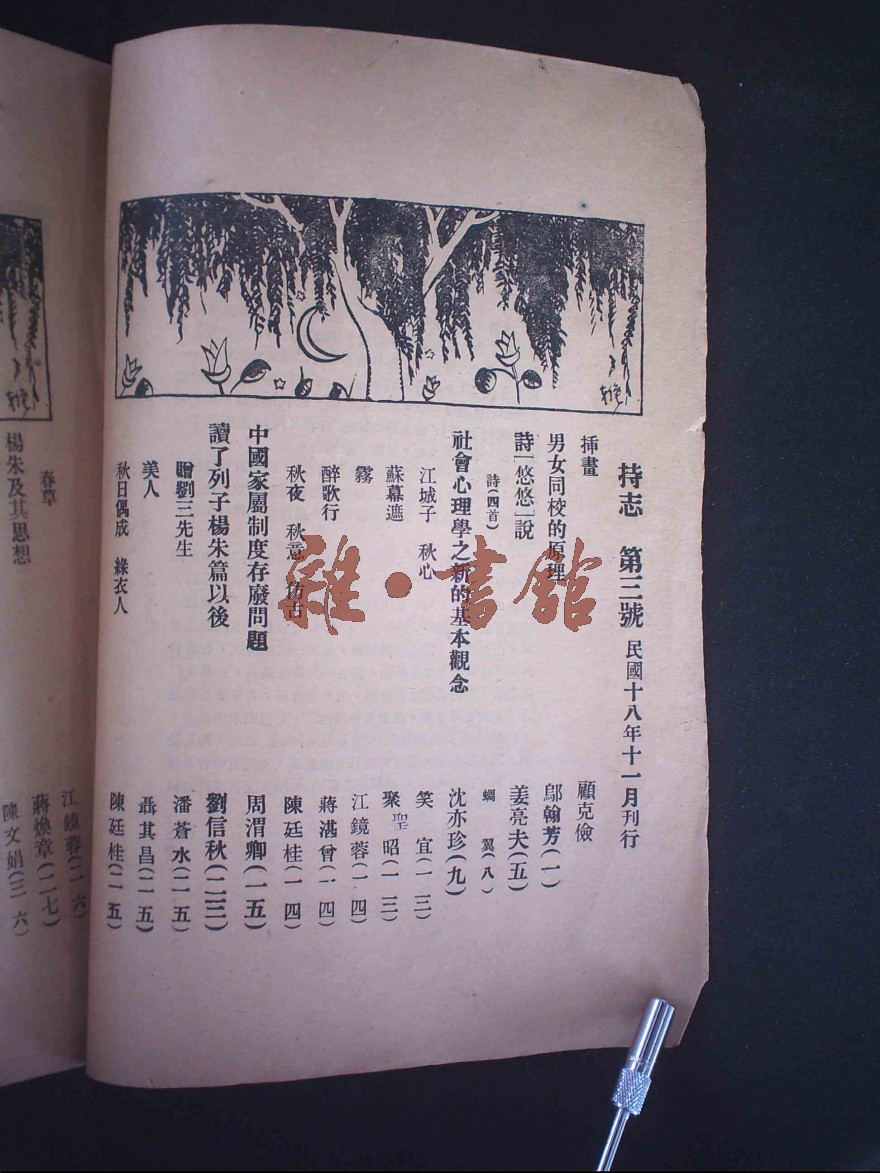 持志 第三號 民國十八年十一月刊行
插畫 顧克儉
男女同校的原理 鄔翰芳(一)
詩「悠悠」說 姜亮夫(五)
詩(四首) 蜩翼(八)
社會心理學之新的基本觀念 沈亦珍(九)
江城子 秋心 笑宜(一三)
蘇幕遮 聚聖昭(一三)
霧 江鏡蓉(一四)
醉歌行 蔣湛曾(一四)
秋夜 秋意 仿古 陳廷桂(一四)
中國家屬制度存廢問題 周渭卿(一五)
讀了列子楊朱篇以後 劉信秋(二三)
贈劉三先生 潘蒼水(二五)
美人 聶其昌(二五)
秋日偶成 綠衣人 陳廷桂(二五)
江鏡蓉(二六)
春草 蔣煥章(二七)
楊朱及其思想 陳文娟(三六)
雜·書館